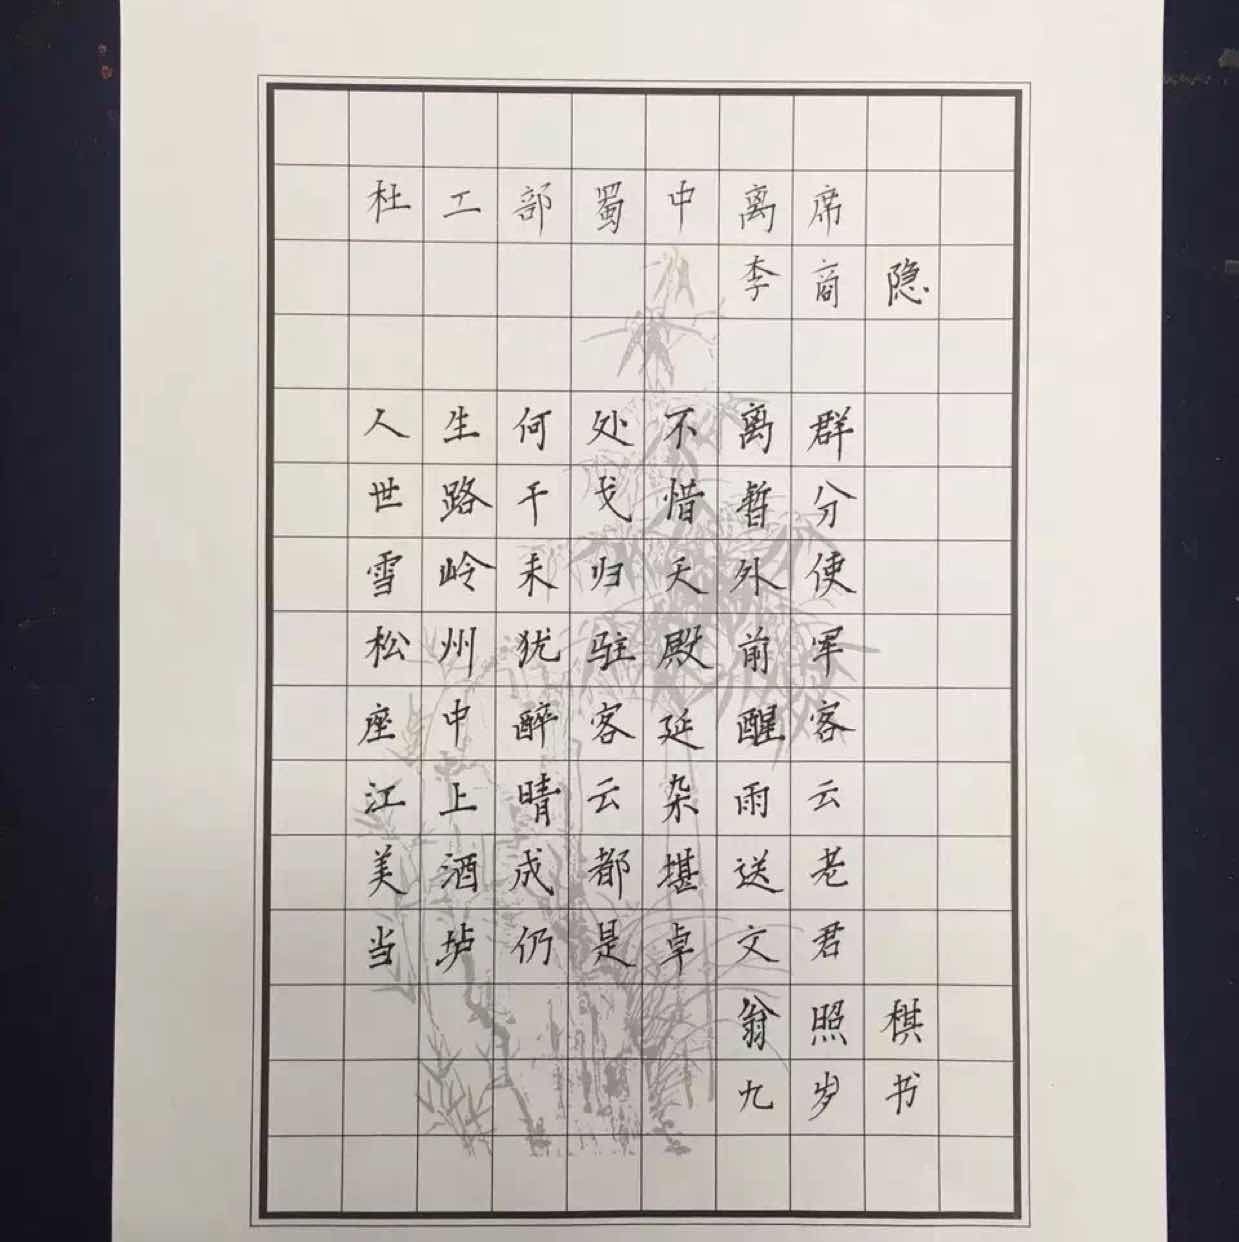 杜工部蜀中离席
李商隐
人生何处不离群
世路干戈惜暂分
雪岭未归天外使
松州犹驻殿前军
座中醉客延醒客
江上晴云杂雨云
美酒成都堪送老
当垆仍是卓文君
翁照棋
九岁书